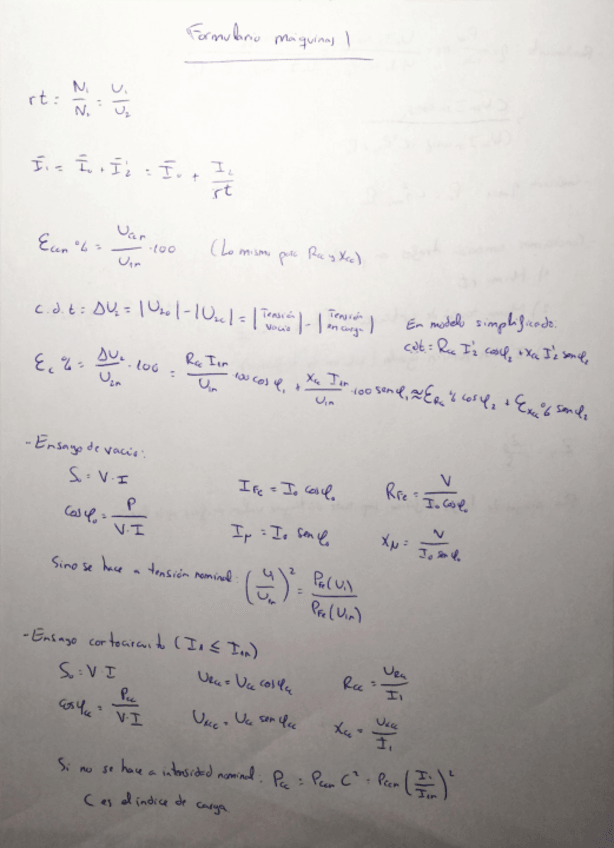 Formulario maquinas 1
rt = N₁/N₂ = U₁/U₂
Ī₁ = Ī₀ + Ī₂' = Ī₀ + I₂/rt
Eccn % = Uccn/U₁n · 100 (Lo mismo para Rcc y Xcc)
c.d.t = ΔU₂ = |U₂₀| - |U₂c| = |Tensión vacio| - |Tensión en carga| En modelo simplificado.
cdt = Rcc I₂' cos φ₂ + Xcc I₂' sen φ₂
Ec % = ΔU₂/U₂n · 100 = Rcc I₁n/U₁n · 100 cos φ₂ + Xcc I₁n/U₁n · 100 sen φ₂ ≈ ERcc % cos φ₂ + EXcc % sen φ₂
- Ensayo de vacio:
S₀ = V · I I Fe = I₀ cos φ₀ R Fe = V/I₀ cos φ₀
cos φ₀ = P/V · I Iμ = I₀ sen φ₀ Xμ = V/I₀ sen φ₀
Si no se hace a tensión nominal: (U₁/U₁n)² = PFe(U₁)/PFe(U₁n)
- Ensayo cortocircuito (I₁ ≤ I₁n)
S₀ = V · I URcc = Ucc cos φcc Rcc = URcc/I₁
cos φcc = Pcc/V · I UXcc = Ucc sen φcc Xcc = UXcc/I₁
Si no se hace a intensidad nominal: Pcc = Pccn C² = Pccn (I₁/I₁n)²
C es el índice de carga